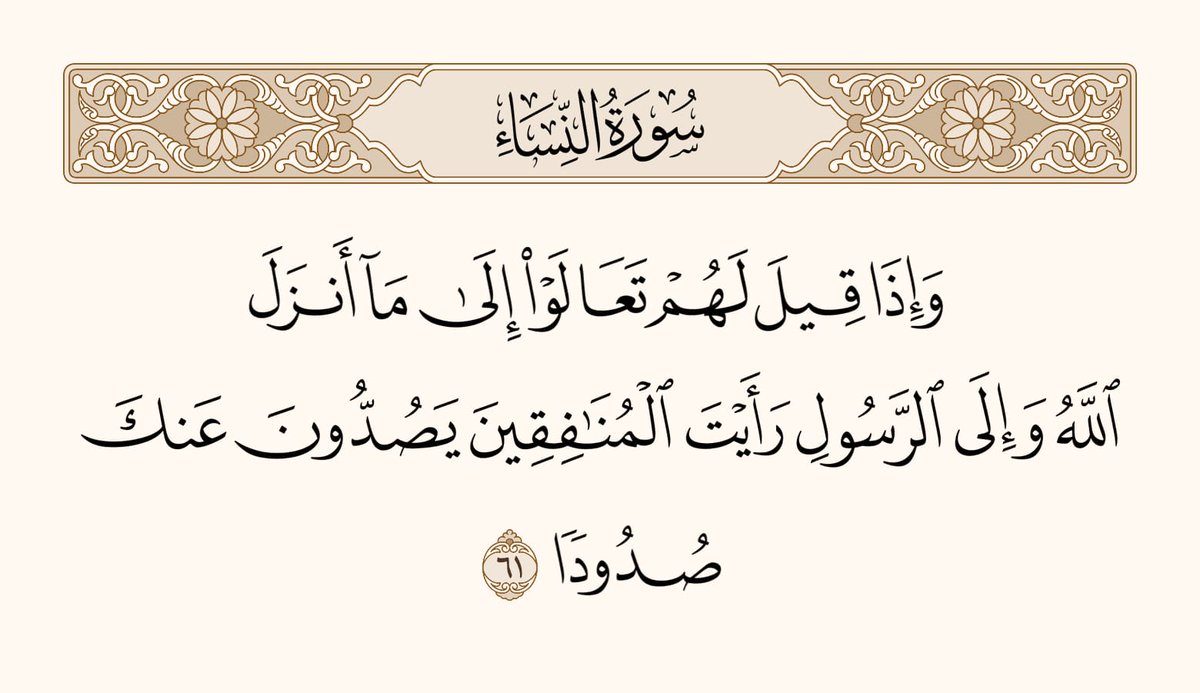 سُورَةُ النِّسَاءِ
وَإِذَا قِيلَ لَهُمۡ تَعَالَوۡاْ إِلَىٰ مَآ أَنزَلَ
ٱللَّهُ وَإِلَى ٱلرَّسُولِ رَأَيۡتَ ٱلۡمُنَٰفِقِينَ يَصُدُّونَ عَنكَ
صُدُودٗا ٦١